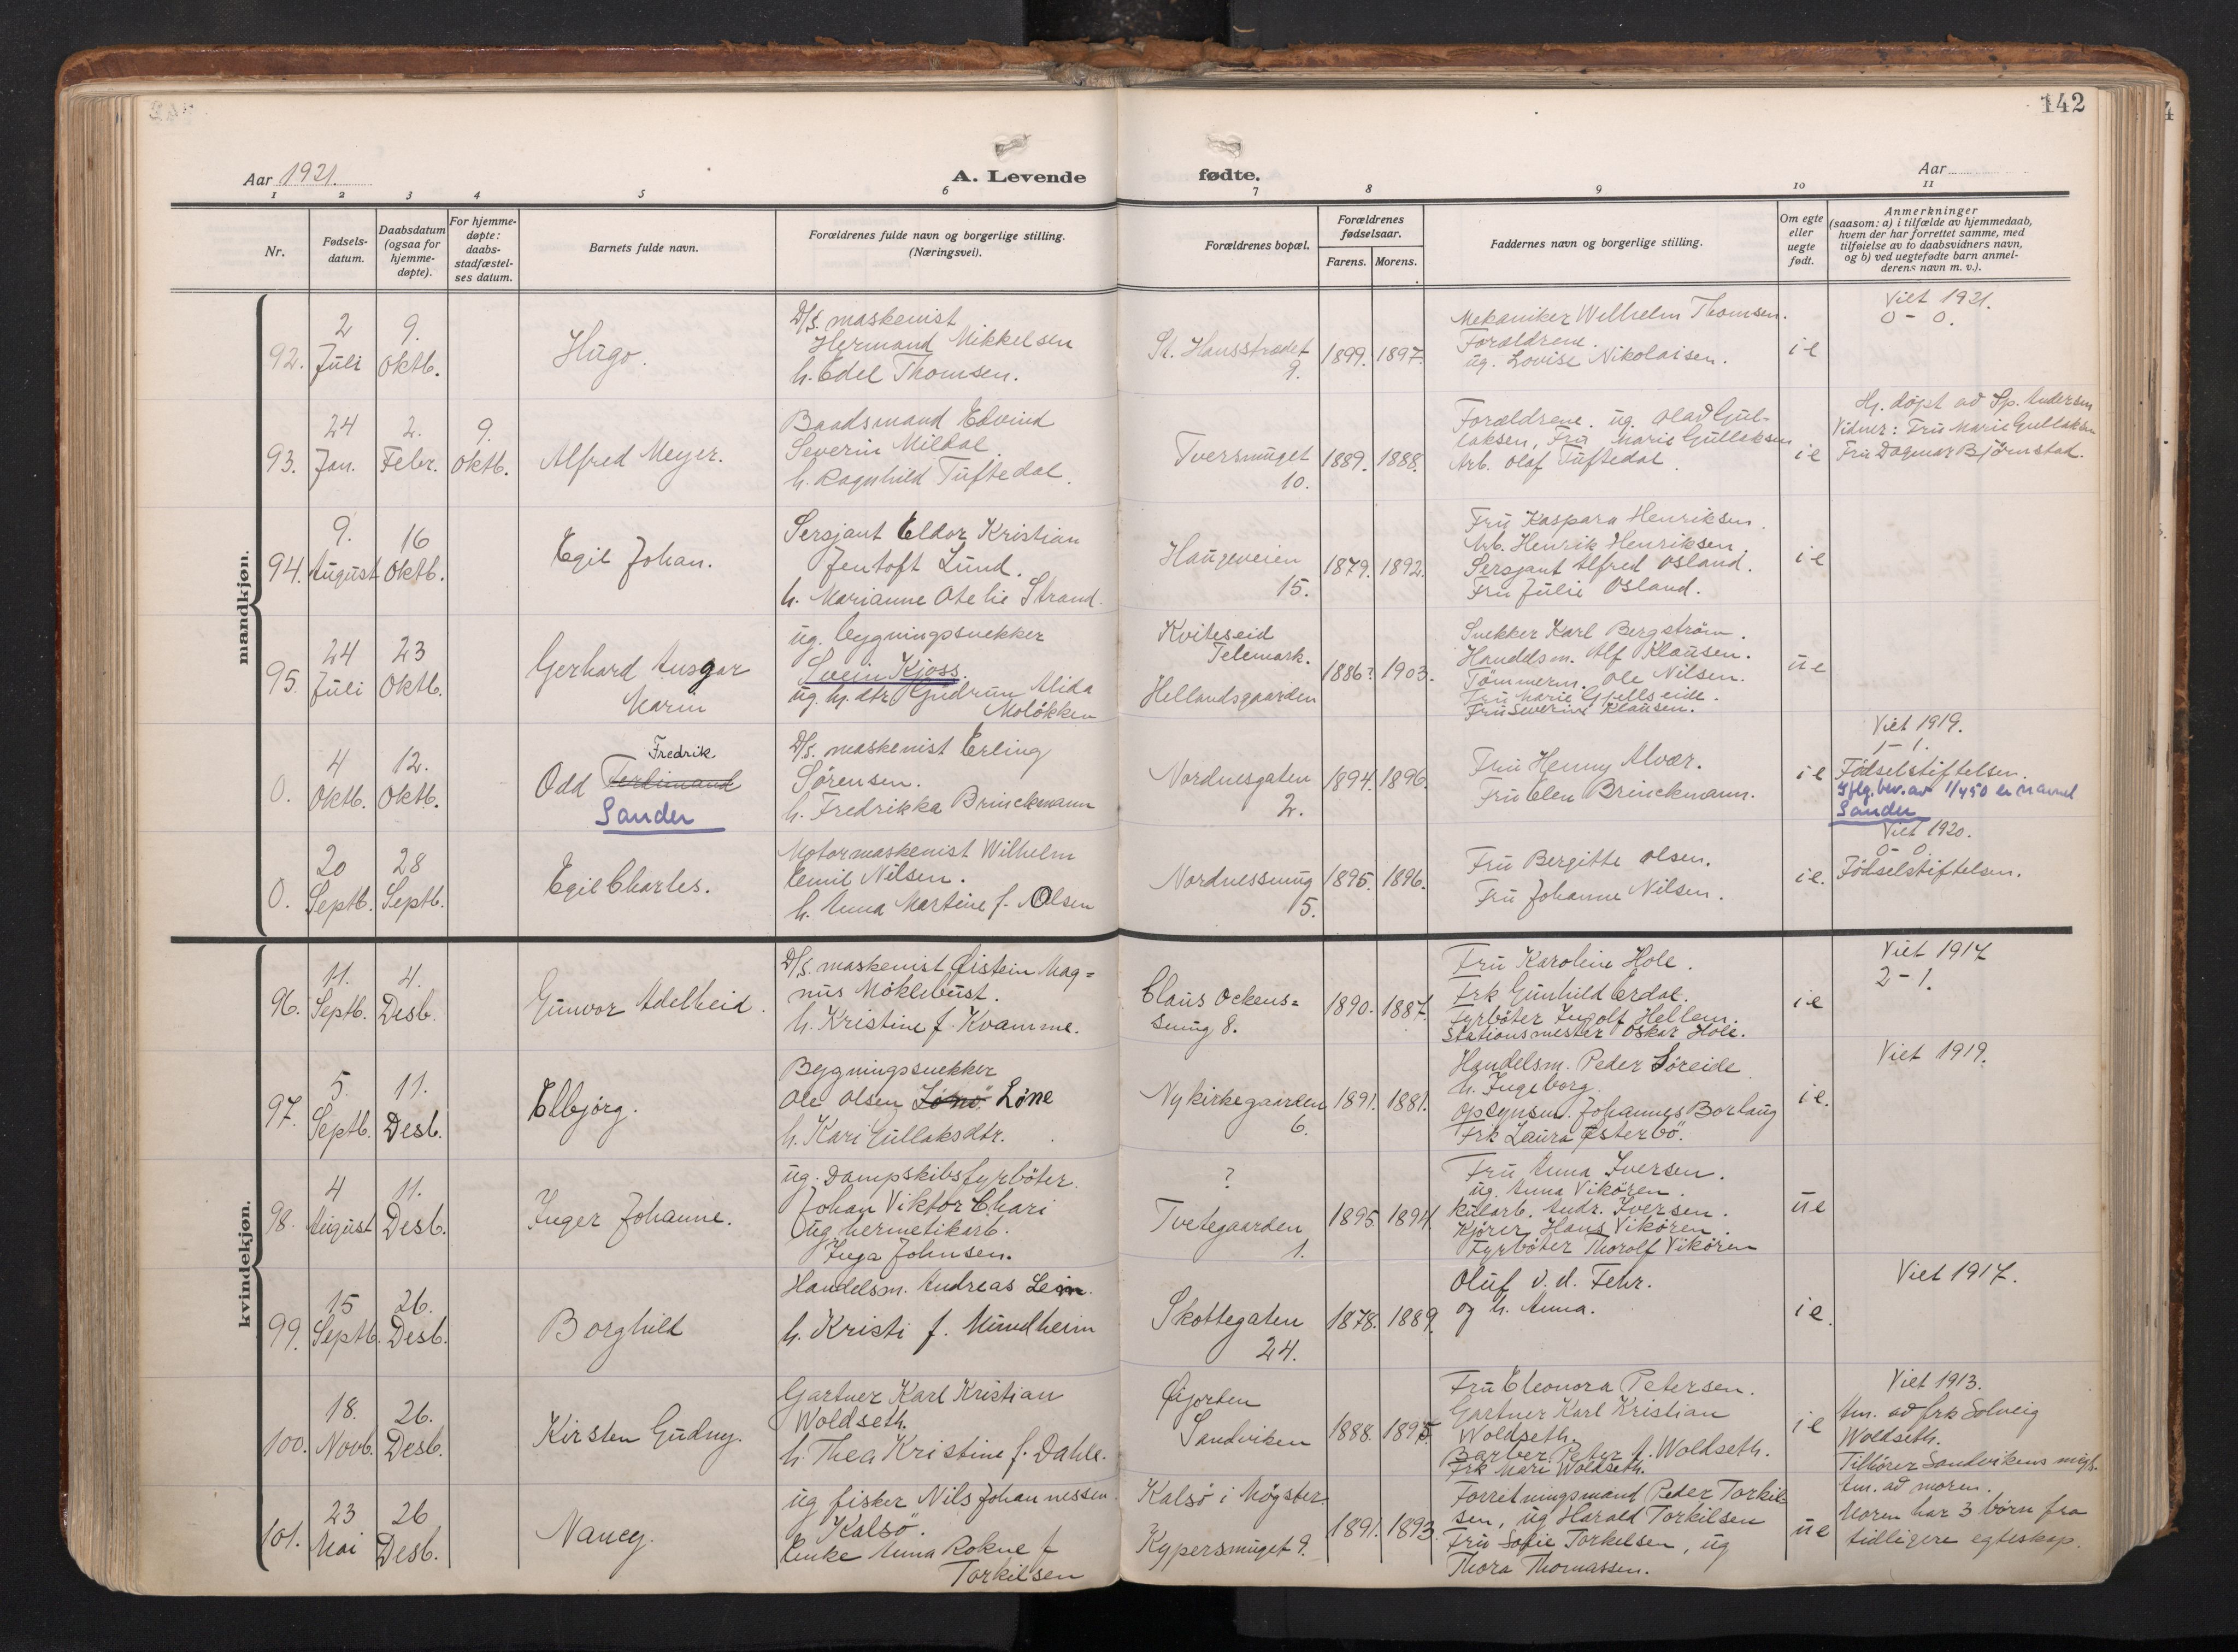 142
Aar 1921.
A. Levende
fødte.
Aar
1 2 3 4 5 6 7 8 9 10 11
Nr.
Fødsels-
datum.
Daabsdatum
(ogsaa for
hjemme-
døpte).
For hjemme-
døpte:
daabs-
stadfæstel-
ses datum.
Barnets fulde navn.
Forældrenes fulde navn og borgerlige stilling.
(Næringsvei).
Forældrenes bopæl.
Forældrenes
fødselsaar.
Farens. Morens.
Faddernes navn og borgerlige stilling.
Om egte
eller
uegte
født.
Anmerkninger
(saasom: a) i tilfælde av hjemmedaab,
hvem der har forrettet samme, med
tilføielse av to daabsvidners navn,
og b) ved uegtefødte barn anmel-
derens navn m. v.).
mandkjøn.
92.
2
Juli
9.
Oktb.
Hugo.
D/s. maskenist
Hermand Mikkelsen
h. Edel Thomsen.
St. Hansstrædet
9.
1899. 1897.
Mekaniker Wilhelm Thomsen.
Forældrene.
ug. Lovise Nikolaisen.
ie
Viet 1921.
0 - 0.
93.
24
Jan.
2.
Febr.
9.
Oktb.
Alfred Meyer.
Baadsmand Edvind
Severin Mildal
h. Ragnhild Tuftedal.
Tversmuget
10.
1889. 1888.
Forældrene. ug. Olav Gul-
laksen, Fru Marie Gullaksen
Arb. Olaf Tuftedal.
ie
Hj. døpt ad Sp. Andersen
Vidner: Fru Marie Gullaksen
Fru Dagmar Bjørnstad.
94.
9.
August
16
Oktb.
Egil Johan.
Sersjant Eldor Kristian
Jentoft Lund.
h. Marianne Otelie Strand.
Haugeveien
15.
1879. 1892.
Fru Kaspara Henriksen.
Arb. Henrik Henriksen.
Sersjant Alfred Osland.
Fru Julie Osland.
ie
95.
24
Juli
23
Oktb.
Gerhard Ansgar
Marin
ug. bygningssnekker
Svein Kjoss.
ug. hj. dtr. Gudrun Alida
Moløkken
Kviteseid
Telemark.
Hellandsgaarden
1886? 1903.
Snekker Karl Bergström.
Handelsm. Alf Klausen.
Tömmerm. Ole Nilsen.
Fru Marie Gjellseide.
Fru Severine Klausen.
ue
0.
4
Oktb.
12.
Oktb.
Fredrik
Odd Ferdinand
Sander
D/s. maskenist Erling
Sørensen.
h. Fredrikka Brinckmann
Nordnesgaten
2.
1894. 1896.
Fru Henny Alvær.
Fru Elen Brinckmann.
ie
Viet 1919.
1 - 1.
Födselstiftelsen.
Iflg. bev. av 1/4 50 er navnet
Sander
0.
20
Septb.
28
Septb.
Egil Charles.
Motormaskenist Wilhelm
Emil Nilsen.
h. Anna Martine f. Olsen
Nordnessmug
15.
1895. 1896.
Fru Bergitte Olsen.
Fru Johanne Nilsen.
ie.
Viet 1920.
0 - 0.
Födselstiftelsen.
kvindekjøn.
96.
11.
Septb.
4.
Desb.
Gunvor Adelheid.
D/s. maskenist Øistein Mag=
nus Möklebust.
h. Kristine f. Kvamme.
Claus Ockens=
smug 8.
1890. 1887.
Fru Karoline Hole.
Frk Gunhild Erdal.
Fyrböter Ingolf Hellem.
Stationsmester Oskar Hole.
ie
Viet 1917
2 - 1.
97.
5.
Septb.
11.
Desb.
Elbjørg.
Bygningssnekker
Ole Olsen Løno Løne
h. Kari Gullaksdtr.
Nykirkegaarden
6.
1891. 1881.
Handelsm. Peder Søreide
h. Ingeborg.
Opsynsm. Johannes Borlaug
Frk Laura Østerbö.
ie.
Viet 1919.
98.
4
August
11.
Desb.
Inger Johanne.
ug. Dampskibsfyrböter.
Johan Viktor Chari
ug. hermetikarb.
Inga Johnsen.
?
Tvetegaarden
1.
1895 1894
Fru Anna Iversen.
ug. Anna Vikören.
Kularb. Andr. Iversen.
Kjörer Hans Vikören.
Fyrböter Thorolf Vikören
ue
99.
15
Septb.
26.
Desb.
Borghild
Handelsm. Andreas Lein.
h. Kristi f. Mundheim
Skottegaten
24.
1878. 1889.
Oluf v. d. Fehr.
og h. Anna.
ie.
Viet 1917.
100.
18.
Novb.
26.
Desb.
Kirsten Gudny.
Gartner Karl Kristian
Woldseth.
h. Thea Kristine f. Dahle.
Øgjorten
Sandviken
1888. 1895.
Fru Eleonora Petersen.
Gartner Karl Kristian
Woldseth.
Barber Peter A. Woldseth.
Frk Mari Woldseth.
ie
Viet 1913.
Am. ad frk Solveig
Woldseth.
Tilhører Sandvikens migh.
101.
23
Mai
26
Desb.
Nancy.
ug fisker Nils Johannessen
Kalsö.
Enke Anna Rokne f
Torkilsen
Kalsö i Møgster
Kypersmuget 9.
1891. 1893.
Forretningsmand Peder Torkil=
sen, ug Harald Torkilsen
Fru Sofie Torkelsen, ug
Thora Thomassen.
ue
Am. ad moren.
Moren har 3 börn fra
tidligere egteskap.